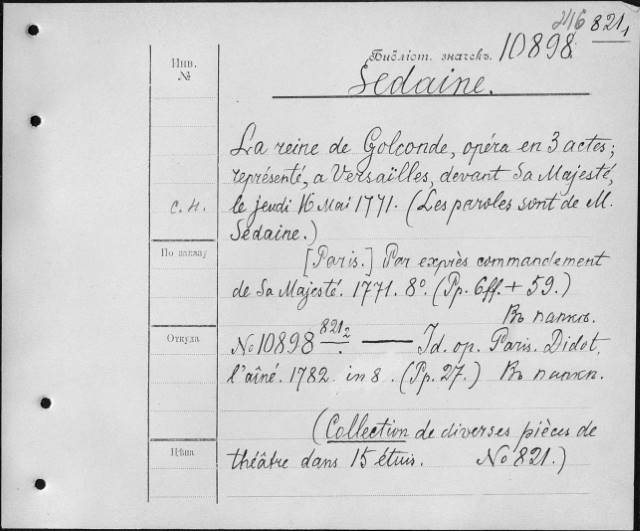 246 821₁
Библіот. значекъ. 10898
Инв. №
Sedaine.
La reine de Golconde, opéra en 3 actes;
représenté, a Versailles, devant Sa Majesté,
с. н. le jeudi 16 Mai 1771. (Les paroles sont de M.
Sedaine.)
По заказу [Paris.] Par exprès commandement
de Sa Majesté. 1771. 8°. (Pp. 6ff. + 59.)
Въ папкѣ.
Откуда № 10898 821₂ — Id. op. Paris. Didot,
l'aîné. 1782. in 8. (Pp. 27.) Въ папкѣ.
(Collection de diverses pièces de
Цѣна théâtre dans 15 étuis. № 821.)